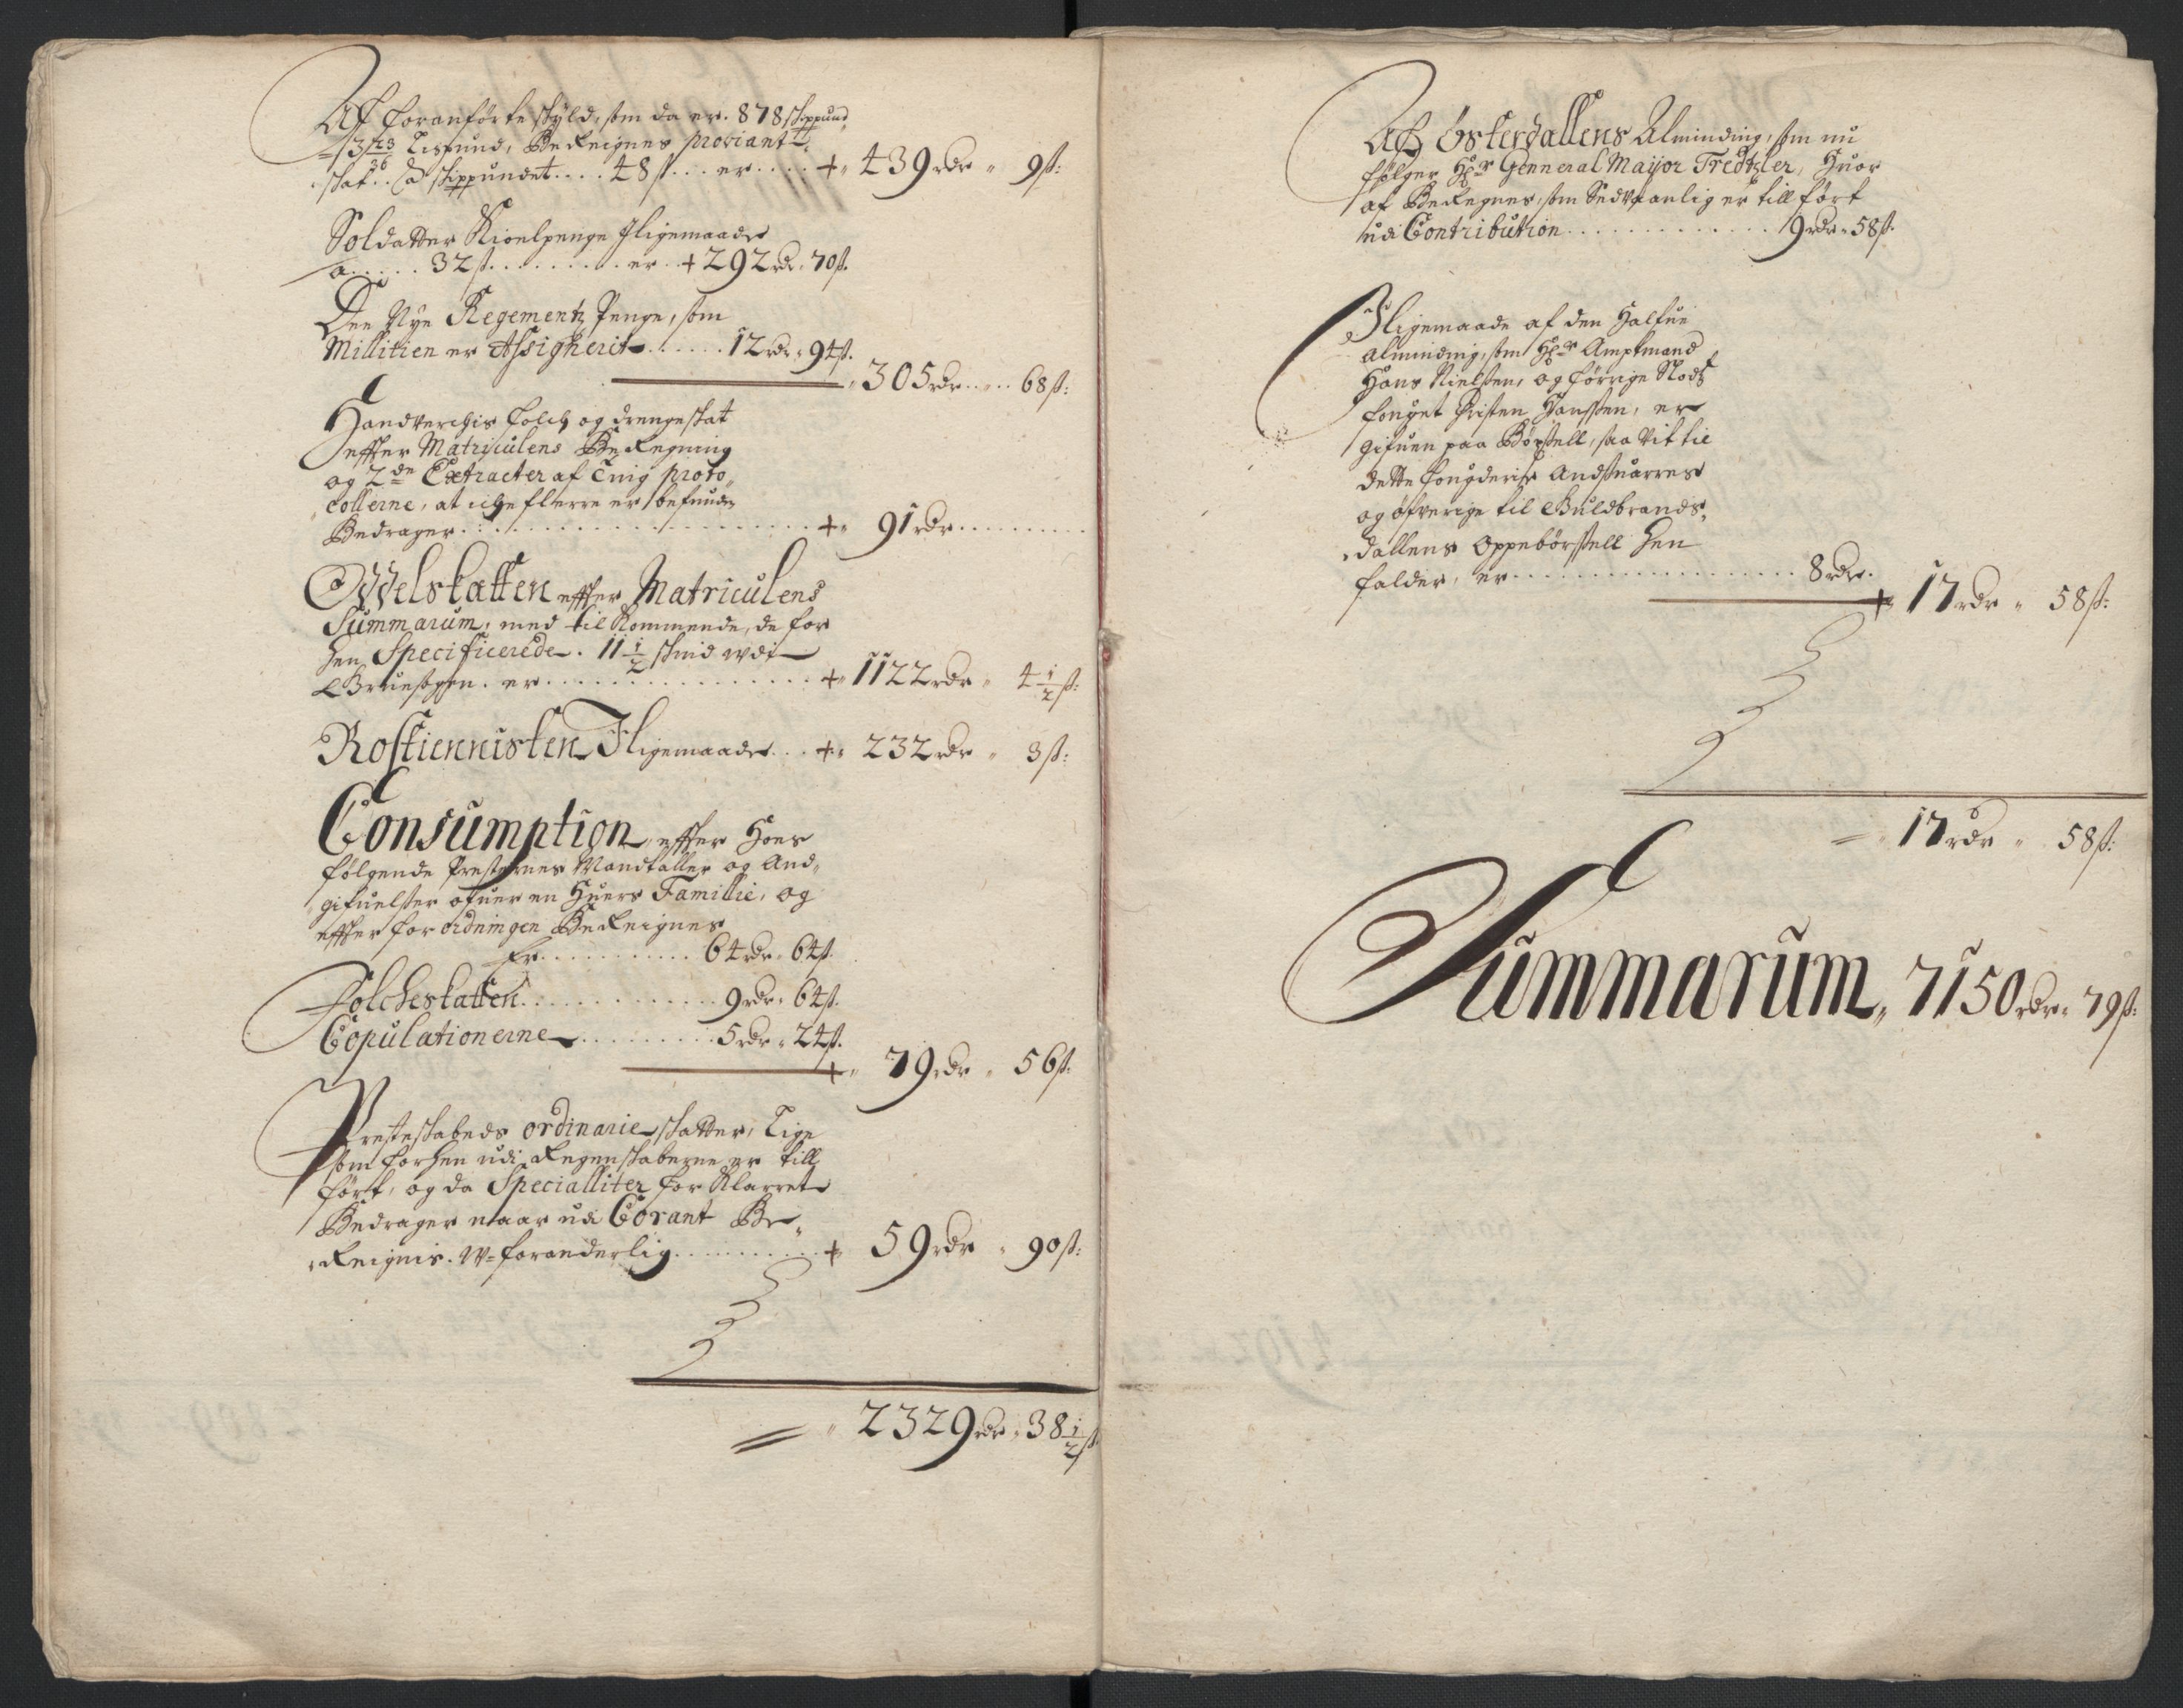 Af foranførte skyld, som da er. 878 skippund,
13 23/36 Lispund, Bereignes proviant
skat. â skippundet.... 48ß... er.... + 439 rdr 9ß:
Soldatter Kioelpenge Jligemaade
a..... 32ß......... er.. + 292 rdr. 70ß.
Den Nye Regementz Penge, som
Millitien er Assignerit...... 12 rdr. 94ß.
305 rdr.... 68ß:
Handverchis folch og drengeskat
effter Matriculens Beregning
og 2de Extracter af Ting proto„
collerne, at iche flerre er befunden
Bedrager..................... + 91 rdr..........
Odelskatten effter Matriculens
Summarum, med tilkommende, de for
hen Specificerede. 11 1/2 skind udi
er.................. + 1122 rdr 4 1/2 ß:
Rostiennisten Jligemaade... + 232 rdr 3ß:
Consumption, effter Hoes
følgende Presternes Mandtaller og And„
gifuelser ofuer en Huers Familie, og
effter forordningen Bereignes
Er.......... 64 rdr. 64ß.
Folcheskatten............. 9 rdr. 64ß.
Copulationerne.......... 5 rdr. 24ß.
+ 79 rdr 56ß:
Presteskabeds ordinarie skatter, Lige
som forhen udi Regenskaberne er till
ført, og da Specialliter forklarret
Bedrager naar udi Corant Be„
Reignis. U=foranderlig.......... + 59 rdr 90ß:
2329 rdr. 38 1/2 ß
Af Østerdallens Alminding, som nu
følger Hr Genneral Maijor Tredtzler, Huor
af Beregnes, som Sedvaanlig er till ført
udi Contribution.............. 9 rdr. 58ß.
Jligemaade af den Halfue
Alminding, som Hr Amptmand
Hans Nielsen, og forrige Slodtz
fouget Christen Hanssen, er
gifuen paa Bøxsell, saa vit til
dette fougderie Andsuarres
og øfverige til Guldbrands„
dallens Oppebørsell hen
falder, er.................. 8 rdr.
+ 17 rdr 58ß:
17 rdr 58ß:
Summarum, 7150 rdr. 79ß: